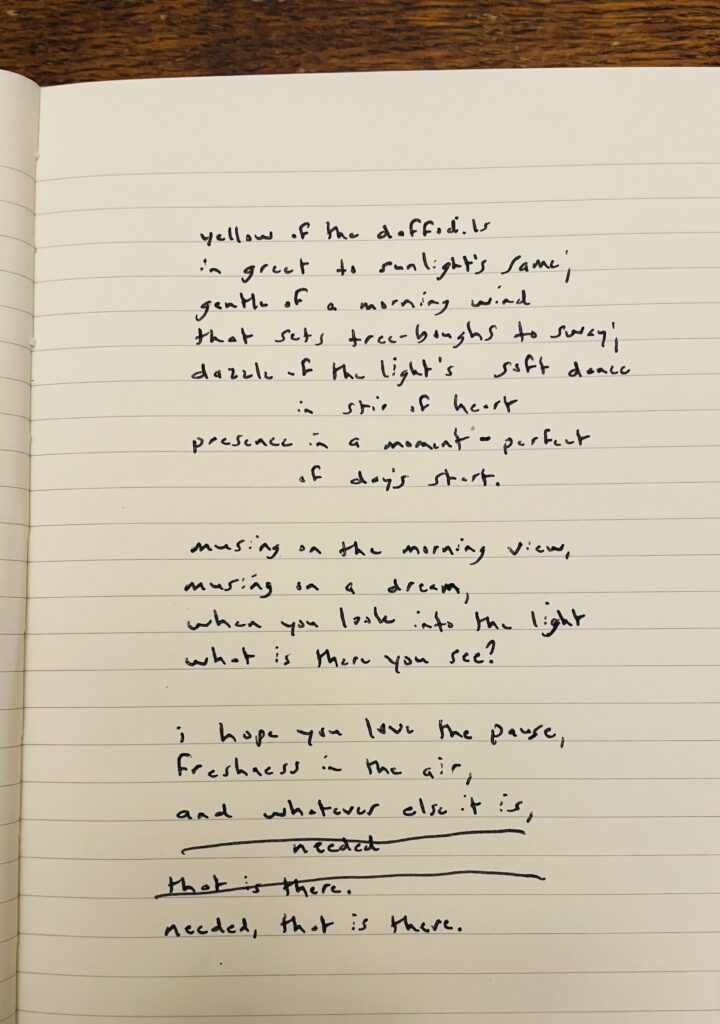 yellow of the daffodils
in greet to sunlight's same;
gentle of a morning wind
that sets tree-boughs to sway;
dazzle of the light's soft dance
in stir of heart
presence in a moment - perfect
of day's start.
musing on the morning view,
musing on a dream,
when you look into the light
what is there you see?
i hope you love the pause,
freshness in the air,
and whatever else it is,
needed
that is there.
needed, that is there.